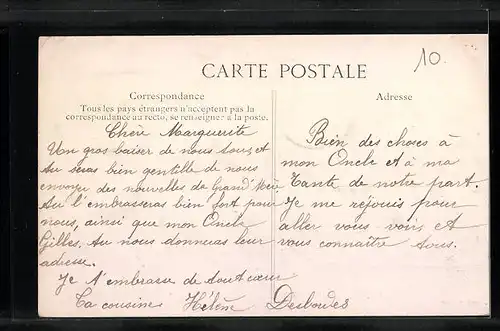 10.
CARTE POSTALE
Correspondance
Tous les pays étrangers n'acceptent pas la
correspondance au recto, se renseigner à la poste.
Adresse
Chère Marguerite
Un gros baiser de nous tous, et
tu seras bien gentille de nous
envoyer des nouvelles de Grand'Mère
tu l'embrasseras bien fort pour
nous, ainsi que mon Oncle
Gilles. tu nous donneras leur
adresse.
Je t'embrasse de tout cœur
Ta cousine Hélène Desbordes
Bien des choses à
mon Oncle et à ma
Tante de notre part.
Je me réjouis pour
aller vous voir, et
vous connaître tous.